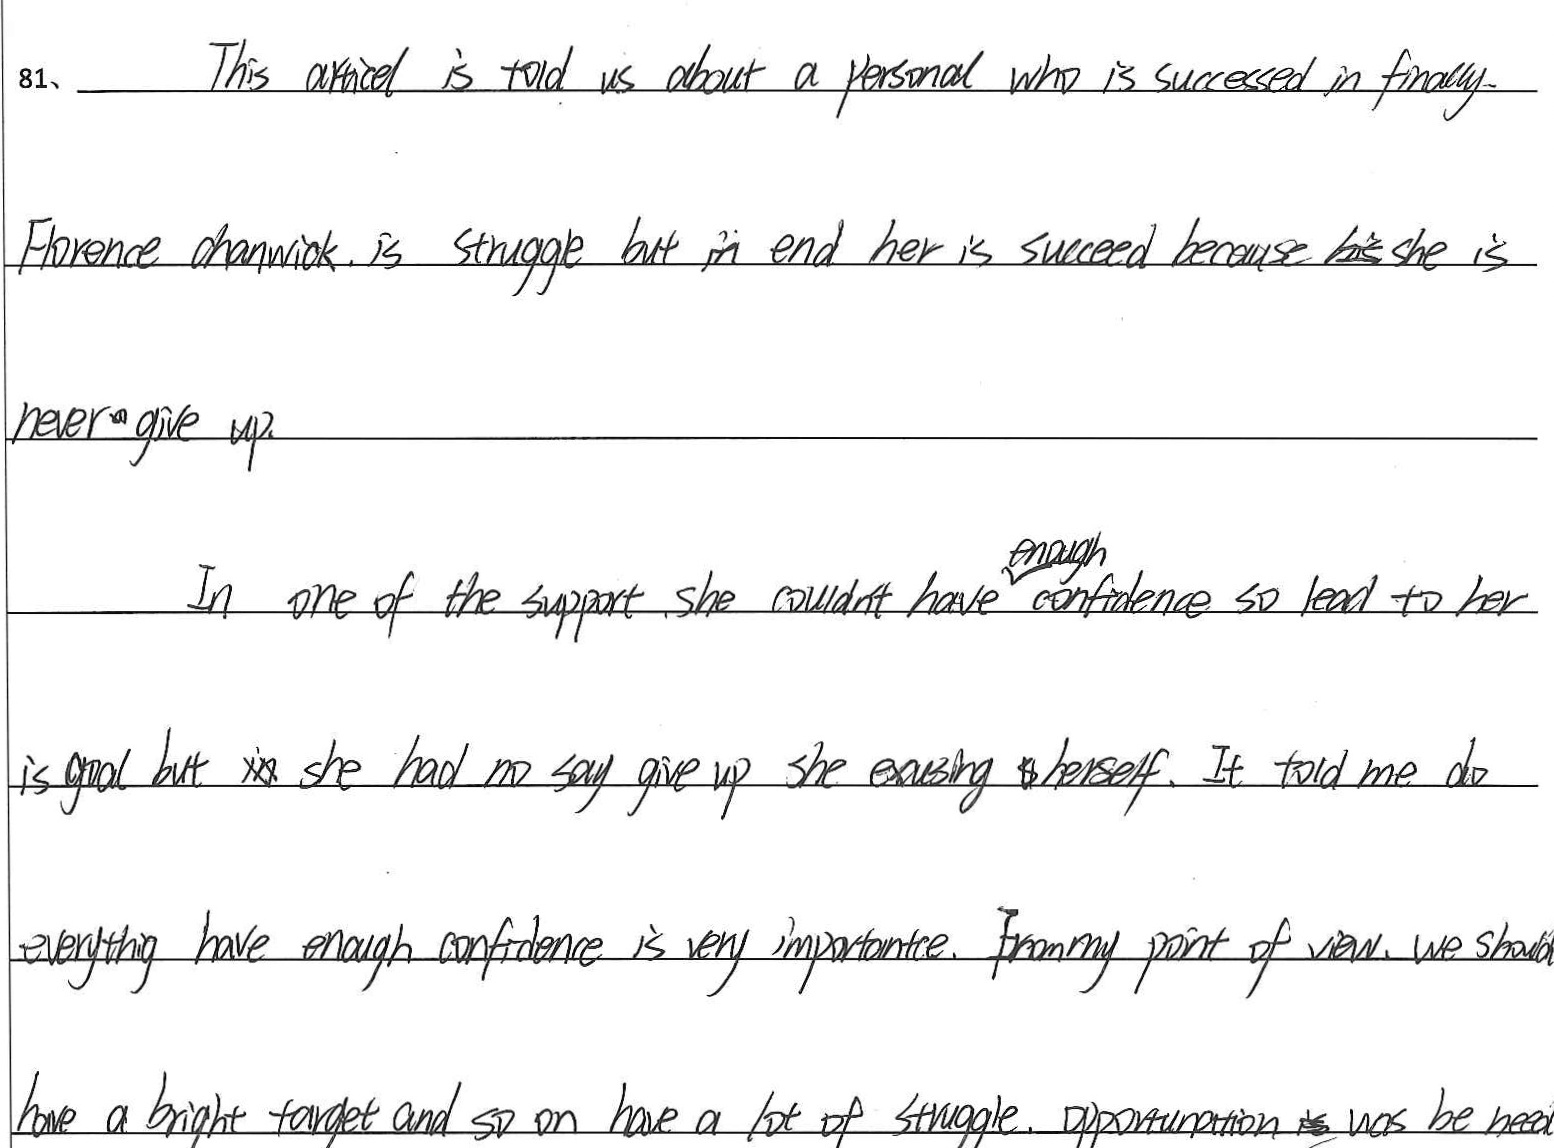 81、 This articel is told us about a personal who is successed in finally.
Florence chanwick. is struggle but in end her is succeed because she is
never give up.
In one of the support. she couldn't have enough confidence so lead to her
is goal but she had no say give up she exausing herself. It told me do
everything have enough confidence is very importantce. From my point of view. we should
have a bright target and so on have a lot of struggle. opportunation was be need